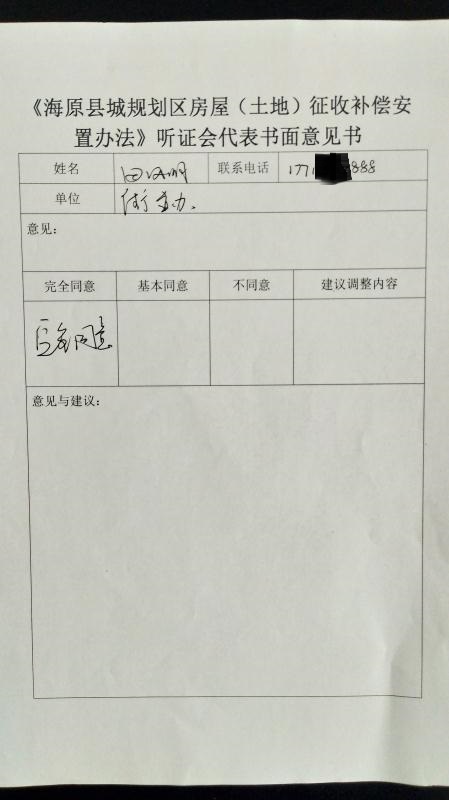 《海原县城规划区房屋（土地）征收补偿安
置办法》听证会代表书面意见书
姓名 田 联系电话 171 888
单位 街办.
意见：
完全同意 基本同意 不同意 建议调整内容
完全同意
意见与建议：